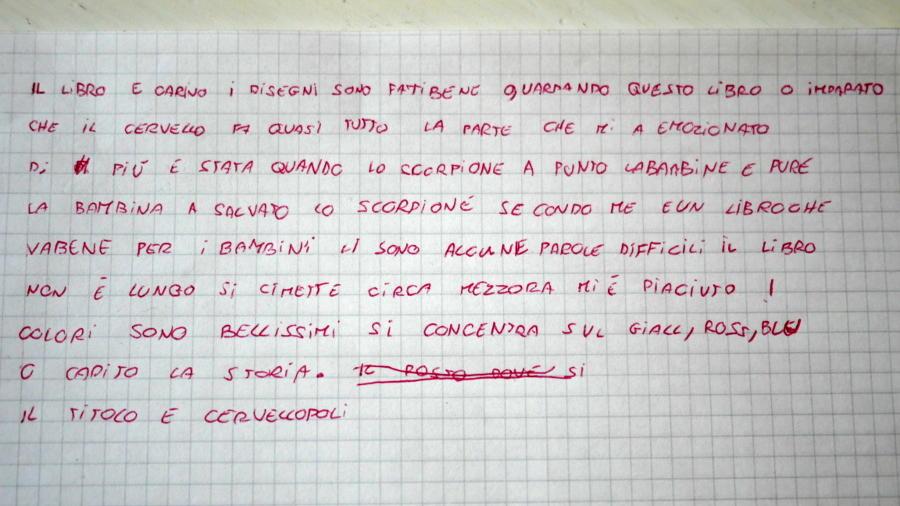 IL LIBRO E CARINO i DISEGNI SONO FATIBENE QUARDANDO QUESTO LIBRO O iMPARATO
CHE iL CERVELLO FA QUASI TUTTO LA PARTE CHE Mi A EMOZIONATO
Di PIÙ É STATA QUANDO LO SCORPIONE A PUNTO LABAMBINE E PURE
LA BAMBINA A SALVATO LO SCORPIONÉ SE CONDO ME EUN LIBROCHE
VABENE PER i BAMBINI Ci SONO ALCUNE PAROLE DIFFICILI iL LIBRO
NON É LUNGO Si CIMETTE CIRCA MEZZORA Mi É PIACIUTO !
COLORI SONO BELLISSIMI Si CONCENTRA SUL GIALL, ROSS, BLU
O CAPITO LA STORIA. IL POSTO DOVE Si
IL TITOLO E CERVELLOPOLI